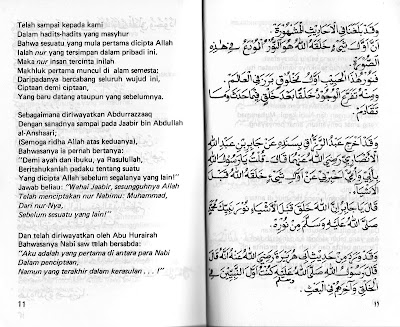 Telah sampai kepada kami
Dalam hadits-hadits yang masyhur
Bahwa sesuatu yang mula pertama dicipta Allah
Ialah nur yang tersimpan dalam pribadi ini.
Maka nur insan tercinta inilah
Makhluk pertama muncul di alam semesta:
Daripadanya bercabang seluruh wujud ini.
Ciptaan demi ciptaan,
Yang baru datang ataupun yang sebelumnya.
Sebagaimana diriwayatkan Abdurrazzaaq
Dengan sanadnya sampai pada Jaabir bin Abdullah
al-Anshaari;
(Semoga ridha Allah atas keduanya),
Bahwasanya ia pernah bertanya:
"Demi ayah dan ibuku, ya Rasulullah,
Beritahukanlah padaku tentang suatu
Yang dicipta Allah sebelum segalanya yang lain!"
Jawab beliau: "Wahai Jaabir, sesungguhnya Allah
Telah menciptakan nur Nabimu: Muhammad,
Dari nur-Nya,
Sebelum sesuatu yang lain!"
Dan telah diriwayatkan oleh Abu Hurairah
Bahwasanya Nabi saw telah bersabda:
"Aku adalah yang pertama di antara para Nabi
Dalam penciptaan,
Namun yang terakhir dalam kerasulan . . . !"
11
وَقَدْ بَلَغَنَا فِي الْأَحَادِيْثِ الْمَشْهُوْرَةِ.
أَنَّ أَوَّلَ شَيْءٍ خَلَقَهُ اللهُ هُوَ النُّوْرُ الْمُوْدَعُ فِي هٰذِهِ
الصُّوْرَةِ.
فَنُوْرُ هٰذَا الْحَبِيْبِ أَوَّلُ مَخْلُوْقٍ بَرَزَ فِي الْعَالَمِ.
وَمِنْهُ تَفَرَّعَ الْوُجُوْدُ خَلْقًا بَعْدَ خَلْقٍ فِيْمَا حَدَثَ وَمَا
تَقَادَمَ.
وَقَدْ أَخْرَجَ عَبْدُ الرَّزَّاقِ بِسَنَدِهِ عَنْ جَابِرِ بْنِ عَبْدِ اللهِ
الْأَنْصَارِيِّ رَضِيَ اللهُ عَنْهُمَا قَالَ: قُلْتُ يَا رَسُوْلَ اللهِ
بِأَبِيْ وَأُمِّيْ أَخْبِرْنِيْ عَنْ أَوَّلِ شَيْءٍ خَلَقَهُ اللهُ قَبْلَ
الْأَشْيَاءِ.
قَالَ يَا جَابِرُ إِنَّ اللهَ خَلَقَ قَبْلَ الْأَشْيَاءِ نُوْرَ نَبِيِّكَ مُحَمَّدٍ
صَلَّى اللهُ عَلَيْهِ وَسَلَّمَ مِنْ نُوْرِهِ.
وَقَدْ وَرَدَ مِنْ حَدِيْثِ أَبِيْ هُرَيْرَةَ رَضِيَ اللهُ عَنْهُ أَنَّهُ قَالَ
قَالَ رَسُوْلُ اللهِ صَلَّى اللهُ عَلَيْهِ وَسَلَّمَ كُنْتُ أَوَّلَ النَّبِيِّيْنَ فِي
الْخَلْقِ وَآخِرَهُمْ فِي الْبَعْثِ.